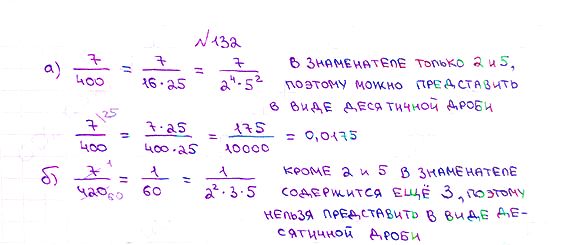 №132
а) 7/400 = 7/(16·25) = 7/(2⁴·5²) В ЗНАМЕНАТЕЛЕ ТОЛЬКО 2 И 5,
ПОЭТОМУ МОЖНО ПРЕДСТАВИТЬ
В ВИДЕ ДЕСЯТИЧНОЙ ДРОБИ
7^25/400 = 7·25/(400·25) = 175/10000 = 0,0175
б) 7^1/420_60 = 1/60 = 1/(2²·3·5) КРОМЕ 2 И 5 В ЗНАМЕНАТЕЛЕ
СОДЕРЖИТСЯ ЕЩЁ 3, ПОЭТОМУ
НЕЛЬЗЯ ПРЕДСТАВИТЬ В ВИДЕ ДЕ-
СЯТИЧНОЙ ДРОБИ